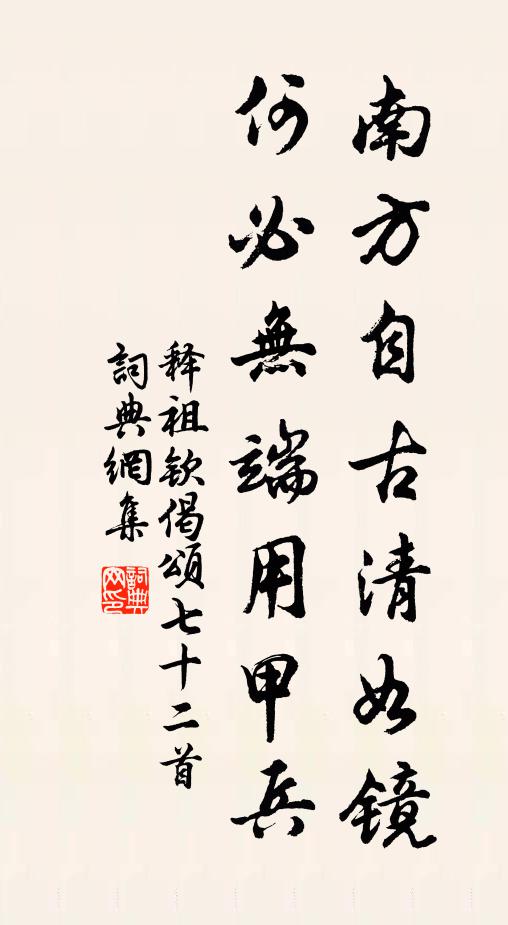 南方自古清如镜
何必無端用甲兵
释祖钦偈頌七十二首
詞典網集
詞典网印